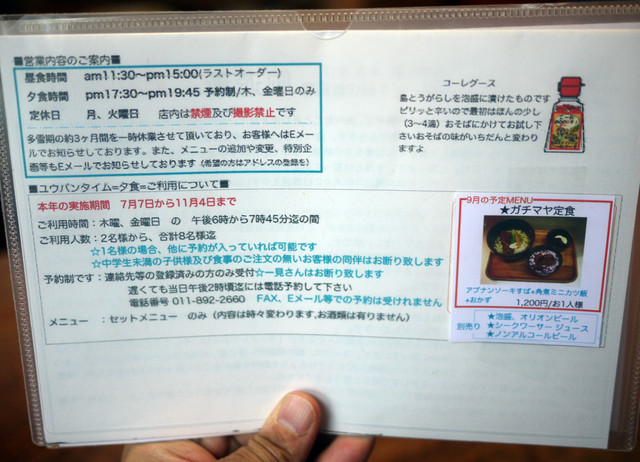 ■営業内容のご案内■
昼食時間 am11:30～pm15:00(ラストオーダー)
夕食時間 pm17:30～pm19:45 予約制/木、金曜日のみ
定休日 月、火曜日 店内は禁煙及び撮影禁止です
多雪期の約3ヶ月間を一時休業させて頂いており、お客様へはEメー
ルでお知らせしております。また、メニューの追加や変更、特別企
画等もEメールでお知らせしております (希望の方はアドレスの登録を)
コーレグース
島とうがらしを泡盛に漬けたものです
ピリッと辛いので最初はほんの少し
(3～4滴) おそばにかけてお試し下
さいおそばの味がいちだんと変わり
ますよ
■ユウバンタイム=夕食=ご利用について■
本年の実施期間 7月7日から11月4日まで
ご利用時間：木曜、金曜日 の 午後6時から7時45分迄の間
ご利用人数：2名様から、合計8名様迄
☆1名様の場合、他に予約が入っていれば可能です
☆中学生未満の子供様及び食事のご注文の無いお客様の同伴はお断り致します
予約制です：連絡先等の登録済みの方のみ受付☆一見さんはお断り致します
遅くても当日午後2時頃迄には電話予約して下さい
電話番号 011-892-2660 FAX、Eメール等での予約は受けれません
メニュー ：セットメニュー のみ (内容は時々変わります,お酒類は有りません)
9月の予定MENU
★ガチマヤ定食
アブナンソーキすば+角煮ミニカツ飯
+おかず
1,200円/お1人様
別売り
★泡盛、オリオンビール
★シークワーサー ジュース
★ノンアルコールビール